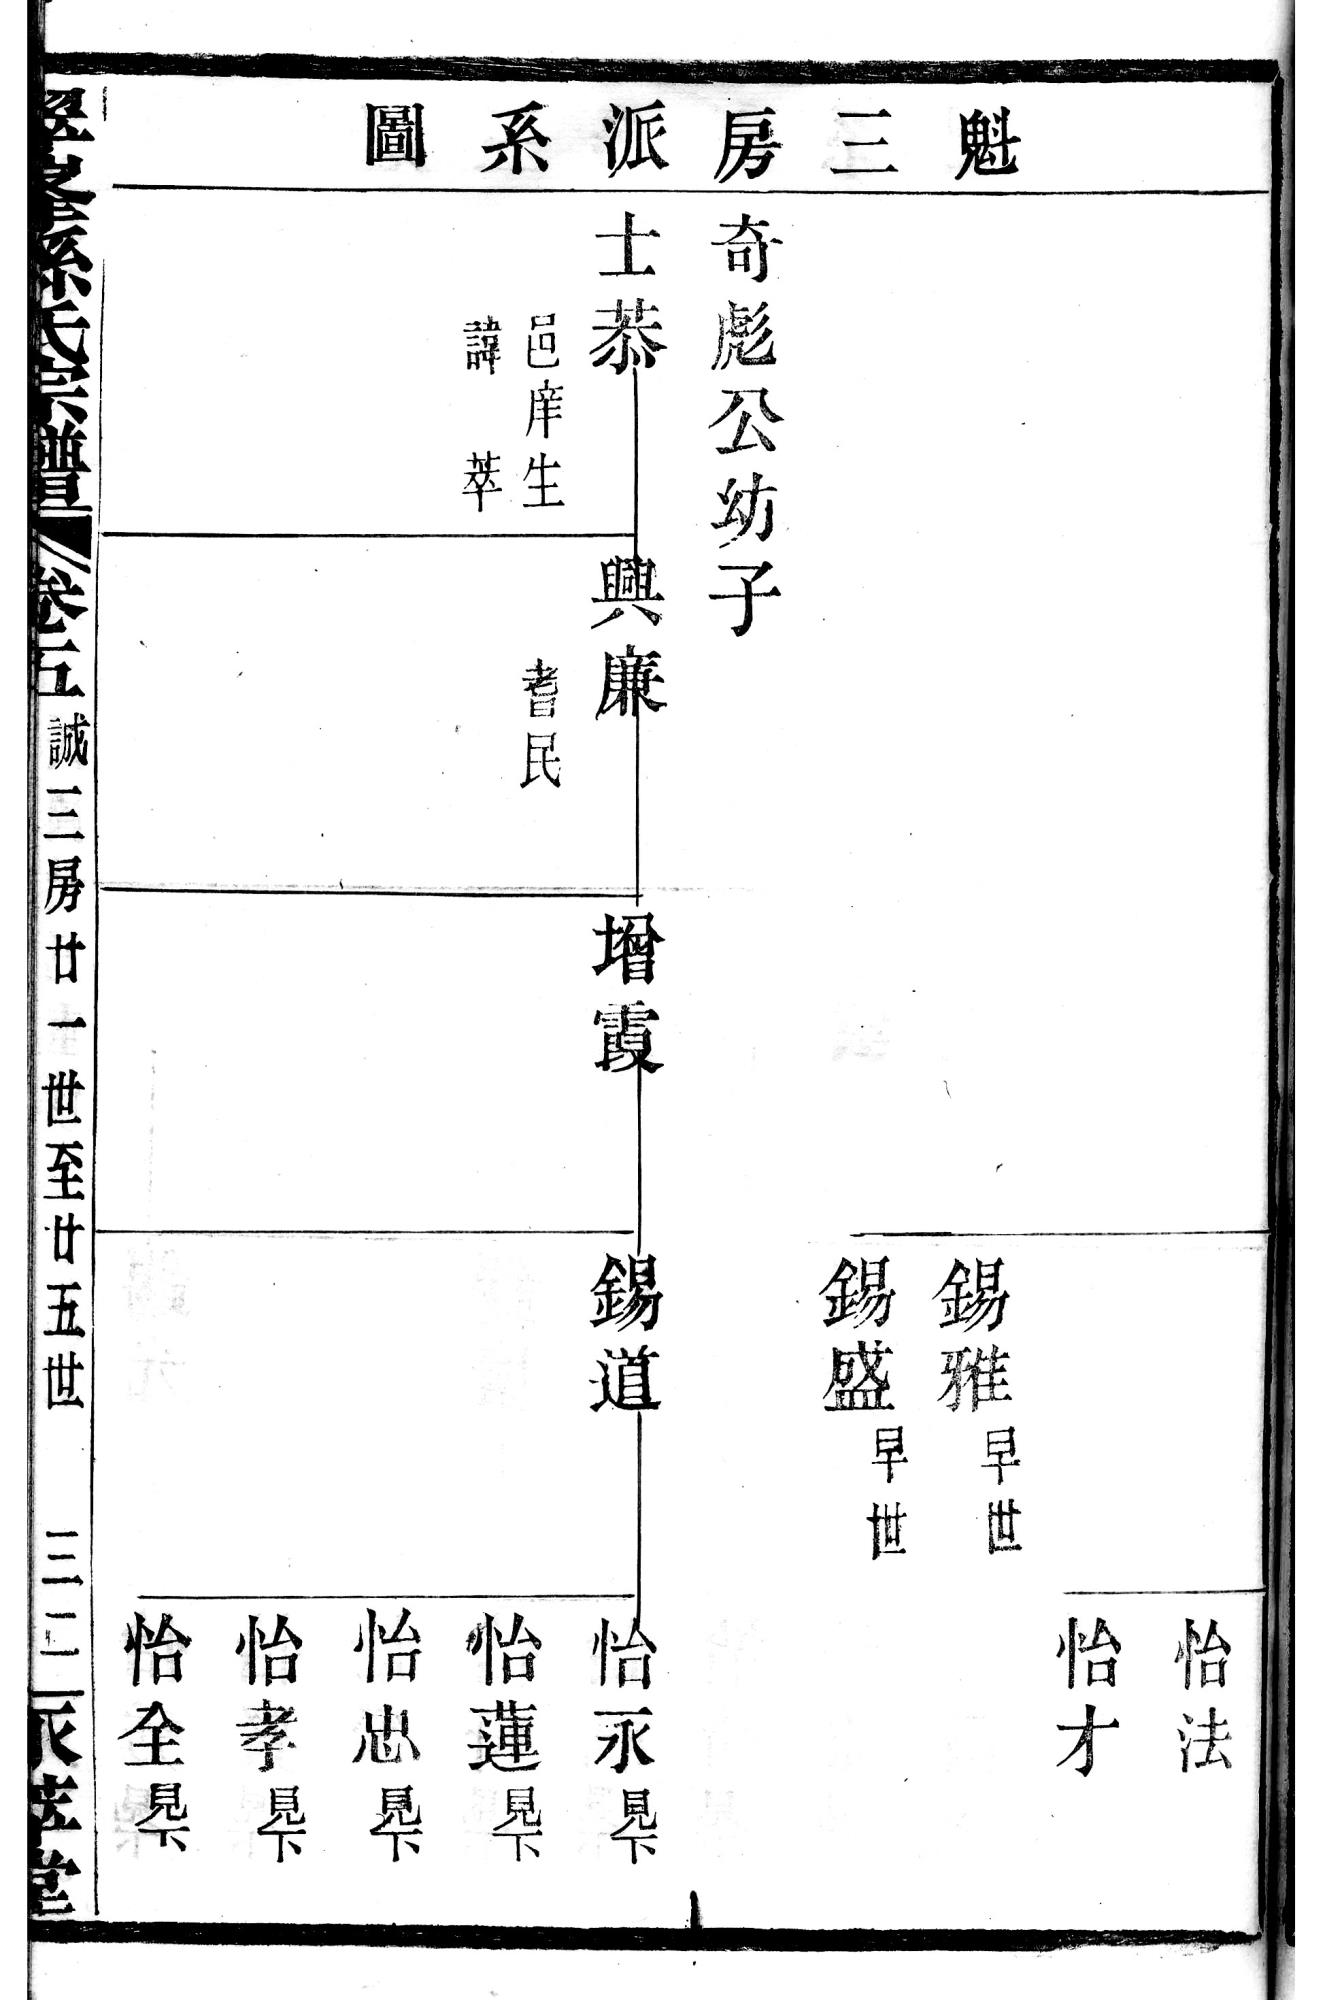 魁三房派系圖
怡法
怡才
錫雅早世
錫盛早世
奇彪公幼子
士恭
邑庠生
諱萃
興廉
耆民
增霞
錫道
怡永見下
怡蓮見下
怡忠見下
怡孝見下
怡全見下
孫氏宗譜
卷五
誠三房廿一世至廿五世
三二
萃堂